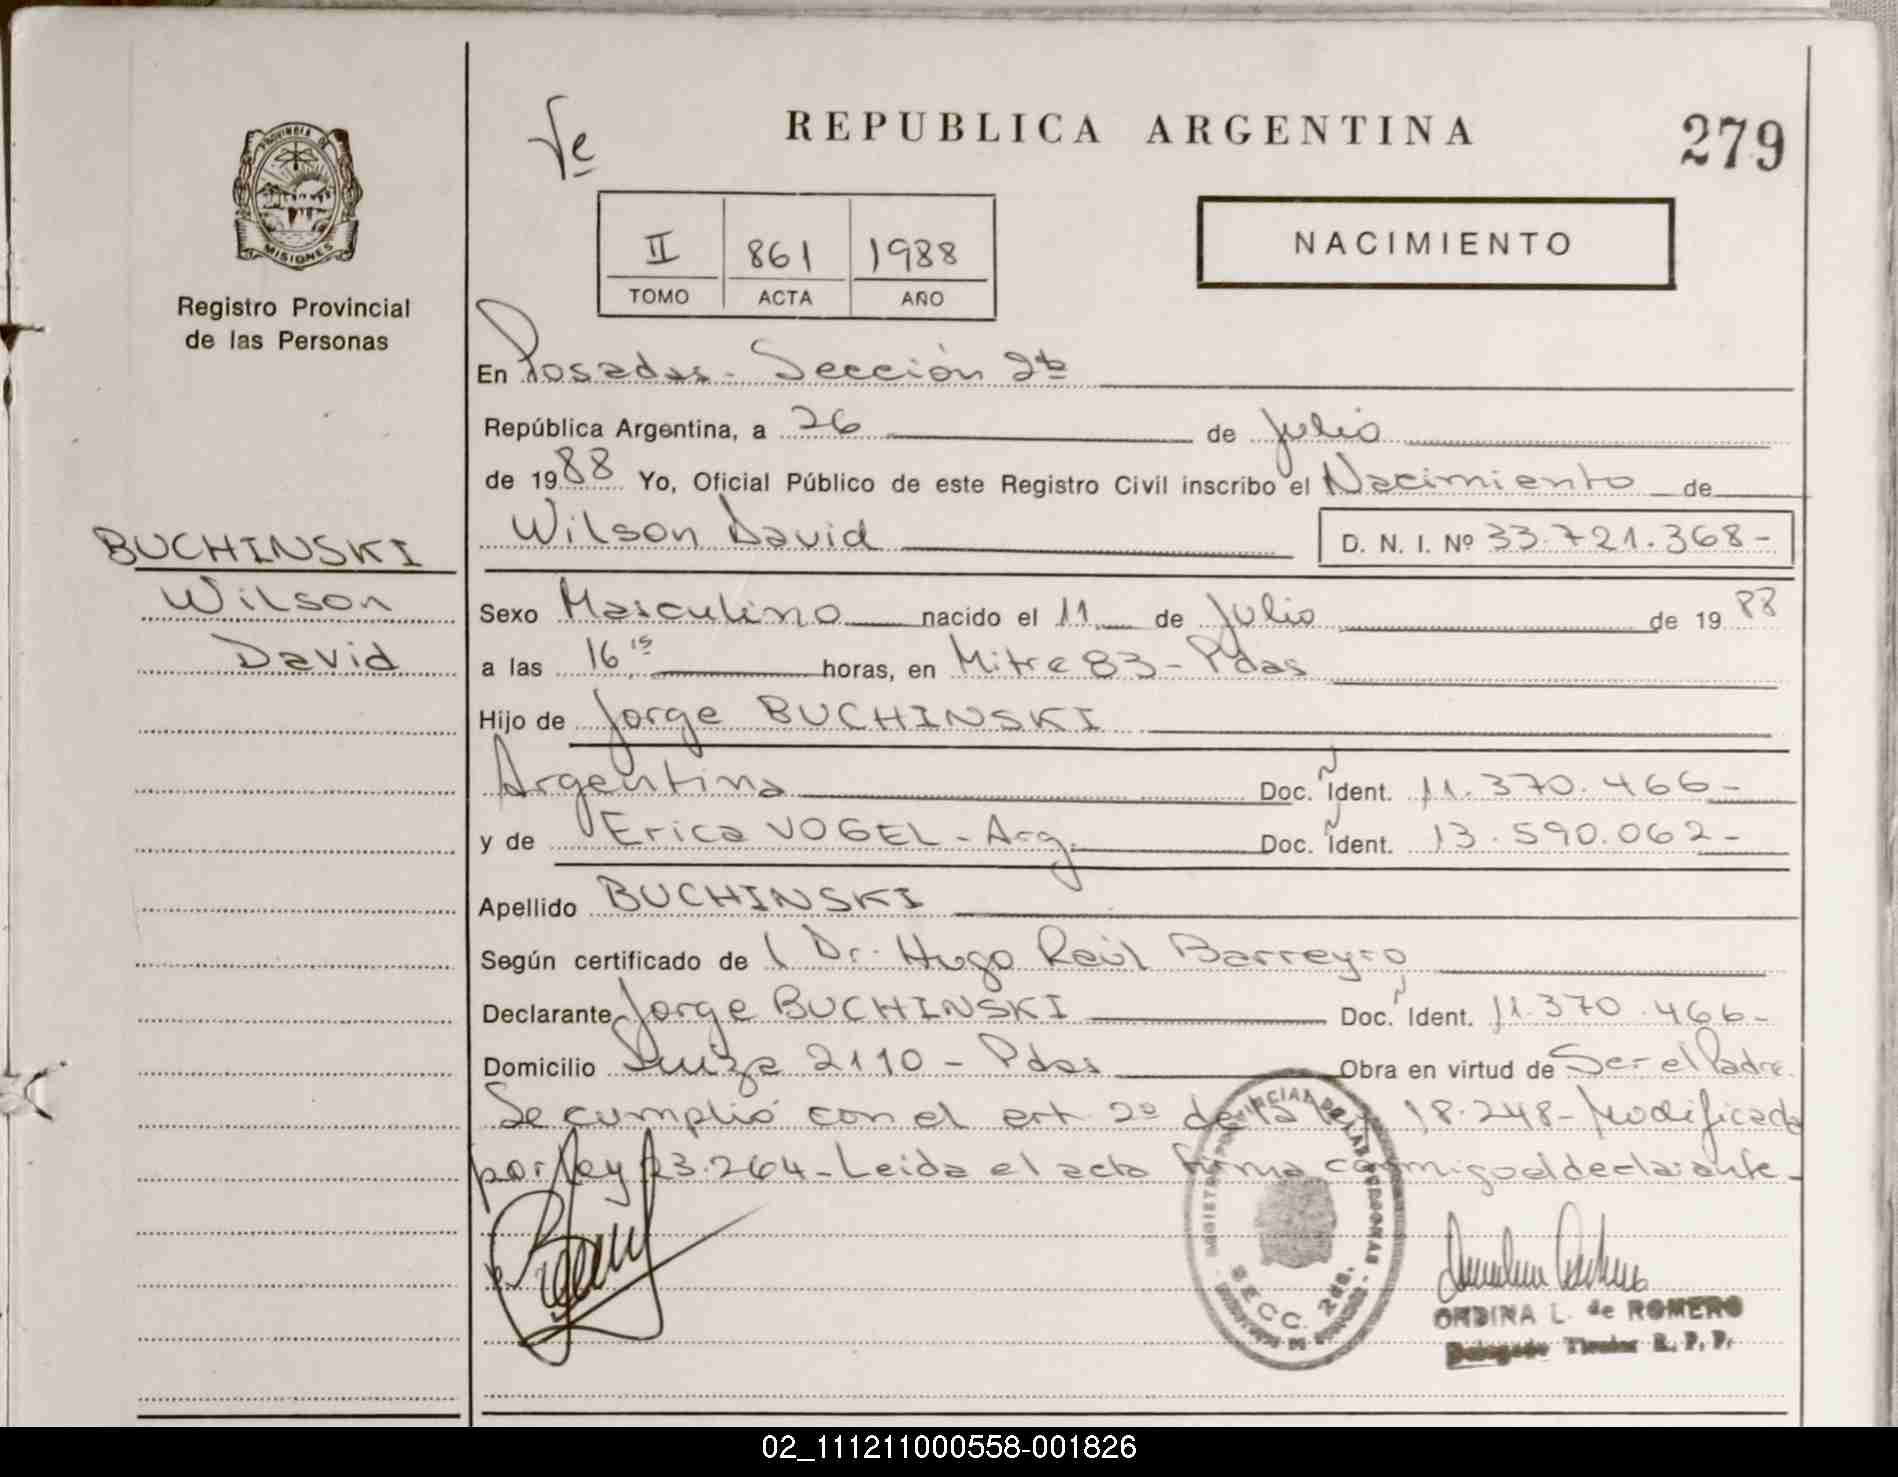 REPUBLICA ARGENTINA
279
PROVINCIA DE
MISIONES
Registro Provincial
de las Personas
II 861 1988
TOMO ACTA AÑO
NACIMIENTO
En Posadas - Sección 2da
República Argentina, a 26 de Julio
de 1988 Yo, Oficial Público de este Registro Civil inscribo el Nacimiento de
Wilson David D. N. I. Nº 33.721.368-
BUCHINSKI
Wilson
David
Sexo Masculino nacido el 11 de Julio de 1988
a las 16,15 horas, en Mitre 83 - Pdas
Hijo de Jorge BUCHINSKI
Argentina Doc. Ident. 11.370.466-
y de Erica VOGEL - Arg. Doc. Ident. 13.590.062-
Apellido BUCHINSKI
Según certificado de l Dr. Hugo Raúl Barreyro
Declarante Jorge BUCHINSKI Doc. Ident. 11.370.466-
Domicilio Suiza 2110 - Pdas Obra en virtud de Ser el Padre.
Se cumplió con el art. 2º de la ley 18.248 - Modificada
por ley 23.264 - Leida el acta firma conmigo el declarante -
REGISTRO PROVINCIAL DE LAS PERSONAS
SECC. 2da.
ORDINA L. de ROMERO
Delegado Titular R. P. P.
02_111211000558-001826